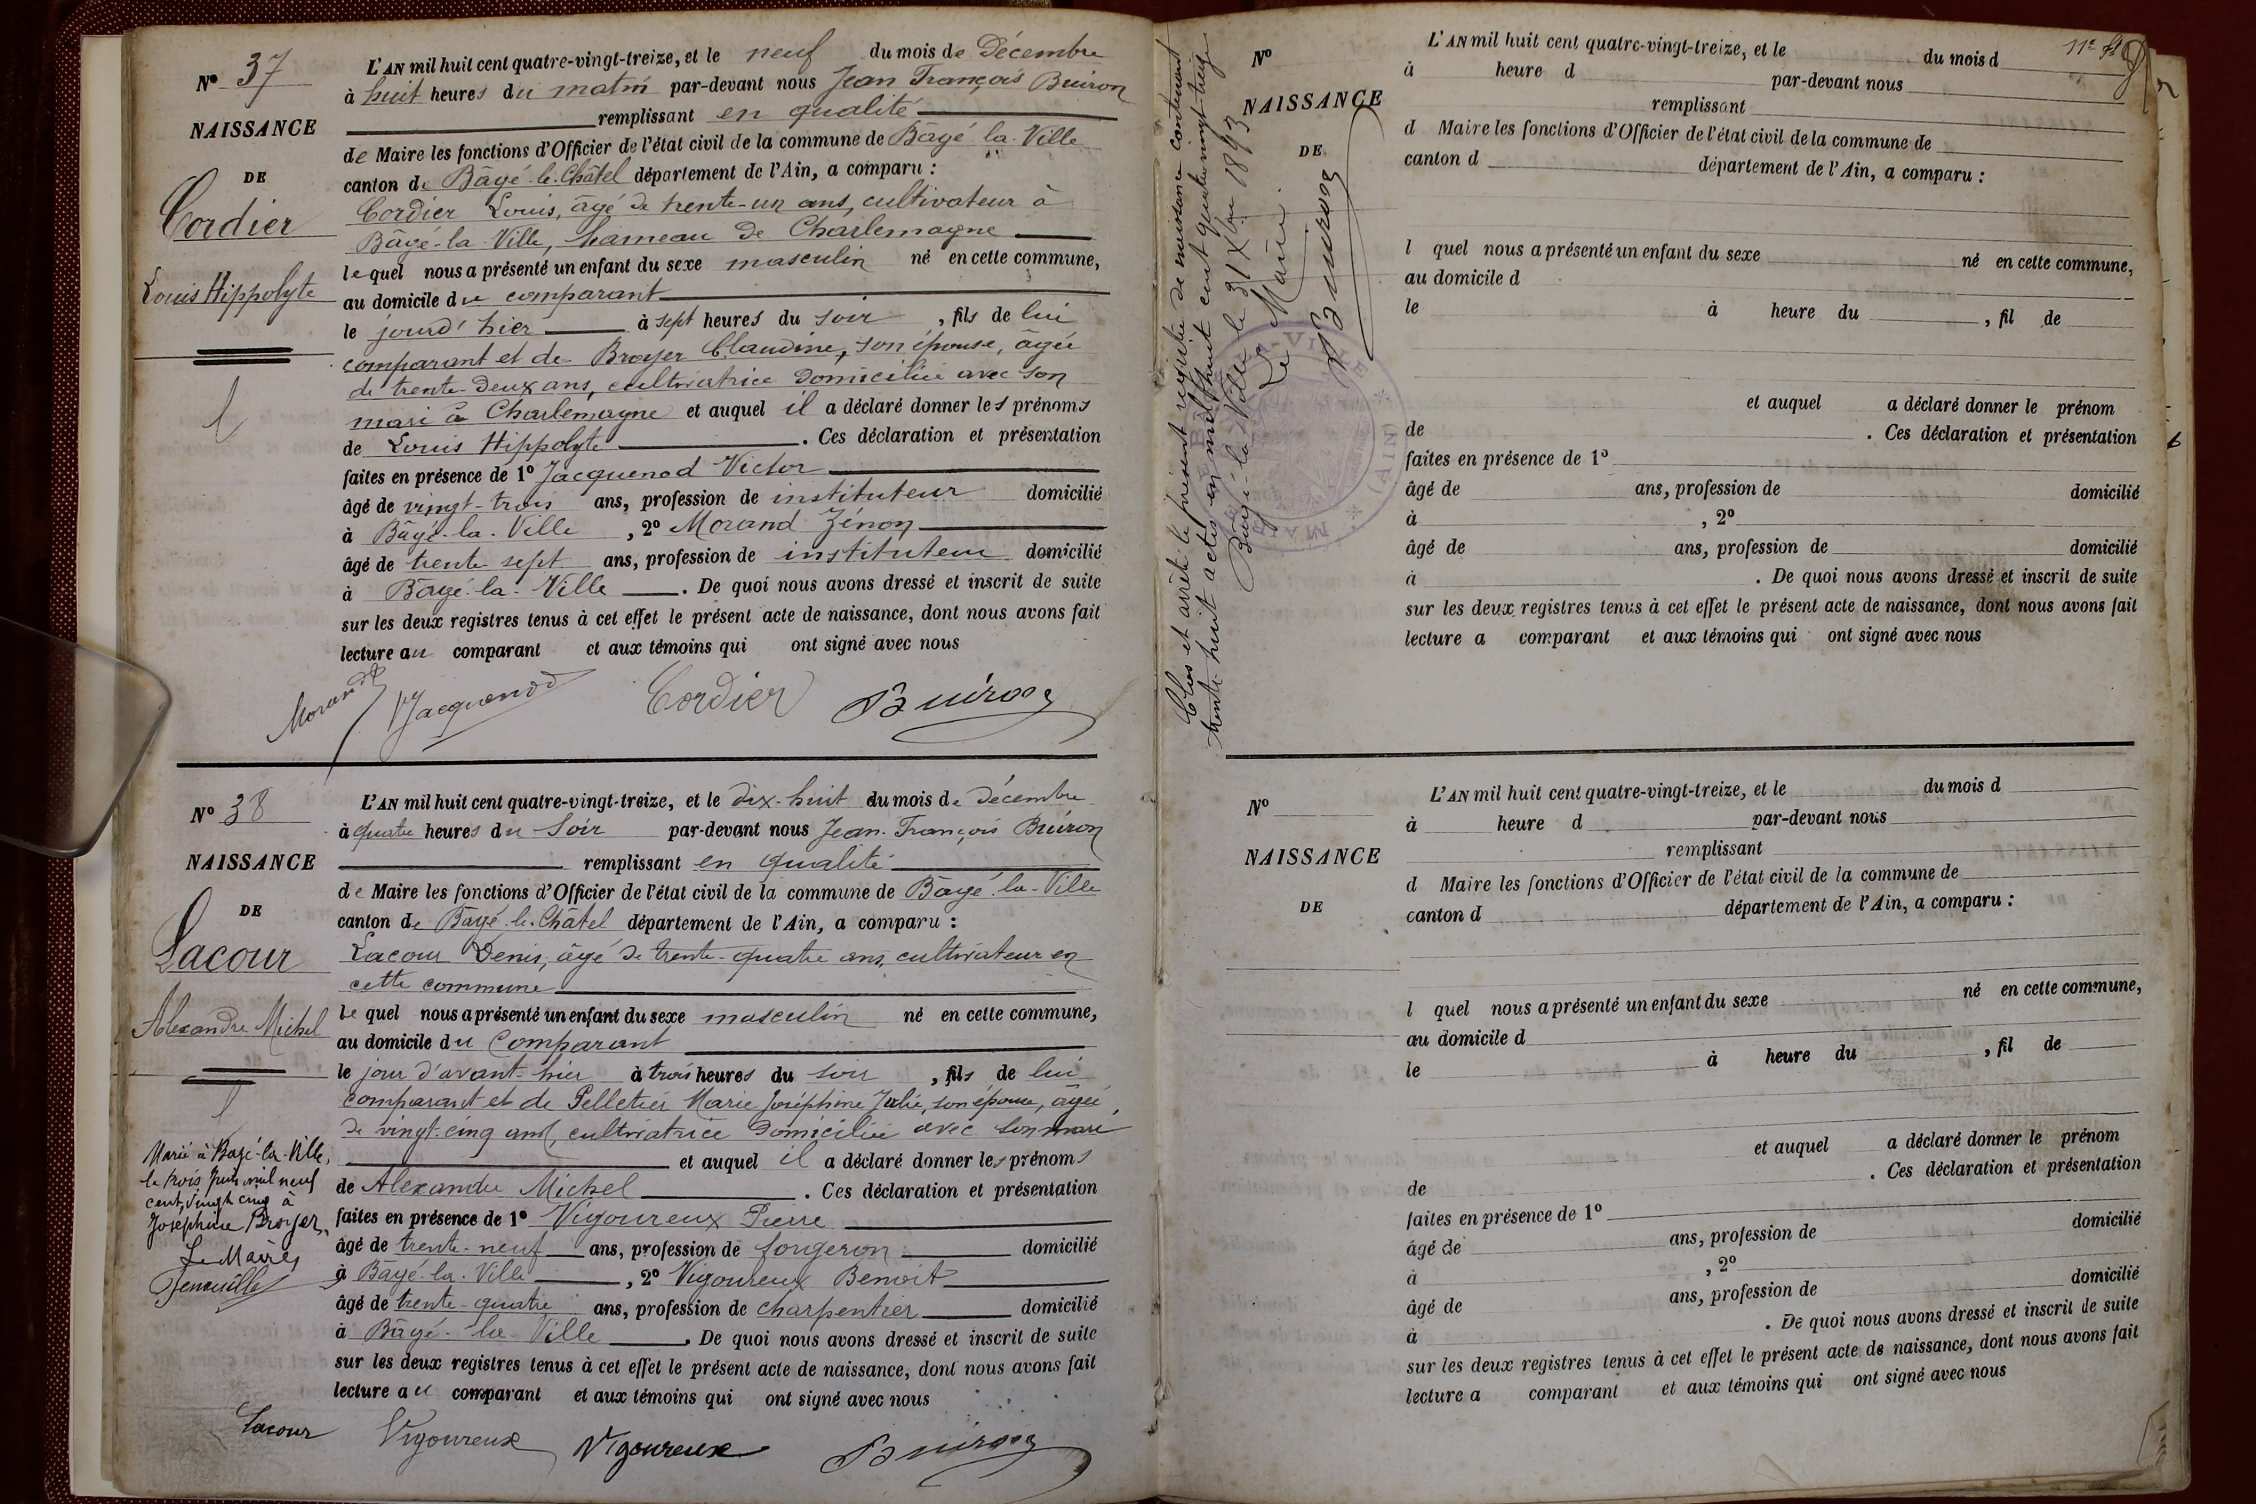 N° 37
NAISSANCE
DE
Cordier
Louis Hippolyte
L'AN mil huit cent quatre-vingt-treize, et le neuf du mois de Décembre
à huit heures du matin par-devant nous Jean François Buiron
remplissant en qualité
de Maire les fonctions d'Officier de l'état civil de la commune de Bâgé-la-Ville
canton de Bâgé-le-Châtel département de l'Ain, a comparu :
Cordier Louis, âgé de trente-un ans, cultivateur à
Bâgé-la-Ville, hameau de Charlemagne
lequel nous a présenté un enfant du sexe masculin né en cette commune,
au domicile du comparant
le jourd'hier à sept heures du soir, fils de lui
comparant et de Broyer Claudine, son épouse, âgée
de trente-deux ans, cultivatrice domiciliée avec son
mari à Charlemagne et auquel il a déclaré donner les prénoms
de Louis Hippolyte. Ces déclaration et présentation
faites en présence de 1° Jacquenod Victor
âgé de vingt-trois ans, profession de instituteur domicilié
à Bâgé-la-Ville, 2° Morand Zénon
âgé de trente sept ans, profession de instituteur domicilié
à Bâgé-la-Ville. De quoi nous avons dressé et inscrit de suite
sur les deux registres tenus à cet effet le présent acte de naissance, dont nous avons fait
lecture au comparant et aux témoins qui ont signé avec nous
Morand Jacquenod Cordier Buiron
N° 38
NAISSANCE
DE
Lacour
Alexandre Michel
Marié à Bagé-la-Ville,
le trois Juin mil neuf
cent vingt cinq à
Joséphine Broyer,
Le Maire,
L'AN mil huit cent quatre-vingt-treize, et le dix-huit du mois de Décembre
à quatre heures du Soir par-devant nous Jean-François Buiron
remplissant en qualité
de Maire les fonctions d'Officier de l'état civil de la commune de Bâgé-la-Ville
canton de Bâgé-le-Châtel département de l'Ain, a comparu :
Lacour Denis, âgé de trente-quatre ans, cultivateur en
cette commune
lequel nous a présenté un enfant du sexe masculin né en cette commune,
au domicile du Comparant
le jour d'avant-hier à trois heures du soir, fils de lui
comparant et de Pelletier Marie Joséphine Julie, son épouse, âgée
de vingt-cinq ans, cultivatrice domiciliée avec son mari
et auquel il a déclaré donner les prénoms
de Alexandre Michel. Ces déclaration et présentation
faites en présence de 1° Vigoureux Pierre
âgé de trente-neuf ans, profession de forgeron domicilié
à Bâgé-la-Ville, 2° Vigoureux Benoit
âgé de trente-quatre ans, profession de charpentier domicilié
à Bâgé-la-Ville. De quoi nous avons dressé et inscrit de suite
sur les deux registres tenus à cet effet le présent acte de naissance, dont nous avons fait
lecture au comparant et aux témoins qui ont signé avec nous
Lacour Vigoureux Vigoureux Buiron
Clos et arrêté le présent registre de naissance contenant
trente-huit actes en mil huit cent quatre-vingt-treize
Bâgé-la-Ville le 31 Xbre 1893
Le Maire
Buiron
N°
NAISSANCE
DE
L'AN mil huit cent quatre-vingt-treize, et le du mois d
à heure d par-devant nous
remplissant
d Maire les fonctions d'Officier de l'état civil de la commune de
canton d département de l'Ain, a comparu :
l quel nous a présenté un enfant du sexe né en cette commune,
au domicile d
le à heure du , fil de
et auquel a déclaré donner le prénom
de . Ces déclaration et présentation
faites en présence de 1°
âgé de ans, profession de domicilié
à , 2°
âgé de ans, profession de domicilié
à . De quoi nous avons dressé et inscrit de suite
sur les deux registres tenus à cet effet le présent acte de naissance, dont nous avons fait
lecture a comparant et aux témoins qui ont signé avec nous
N°
NAISSANCE
DE
L'AN mil huit cent quatre-vingt-treize, et le du mois d
à heure d par-devant nous
remplissant
d Maire les fonctions d'Officier de l'état civil de la commune de
canton d département de l'Ain, a comparu :
l quel nous a présenté un enfant du sexe né en cette commune,
au domicile d
le à heure du , fil de
et auquel a déclaré donner le prénom
de . Ces déclaration et présentation
faites en présence de 1°
âgé de ans, profession de domicilié
à , 2°
âgé de ans, profession de domicilié
à . De quoi nous avons dressé et inscrit de suite
sur les deux registres tenus à cet effet le présent acte de naissance, dont nous avons fait
lecture a comparant et aux témoins qui ont signé avec nous